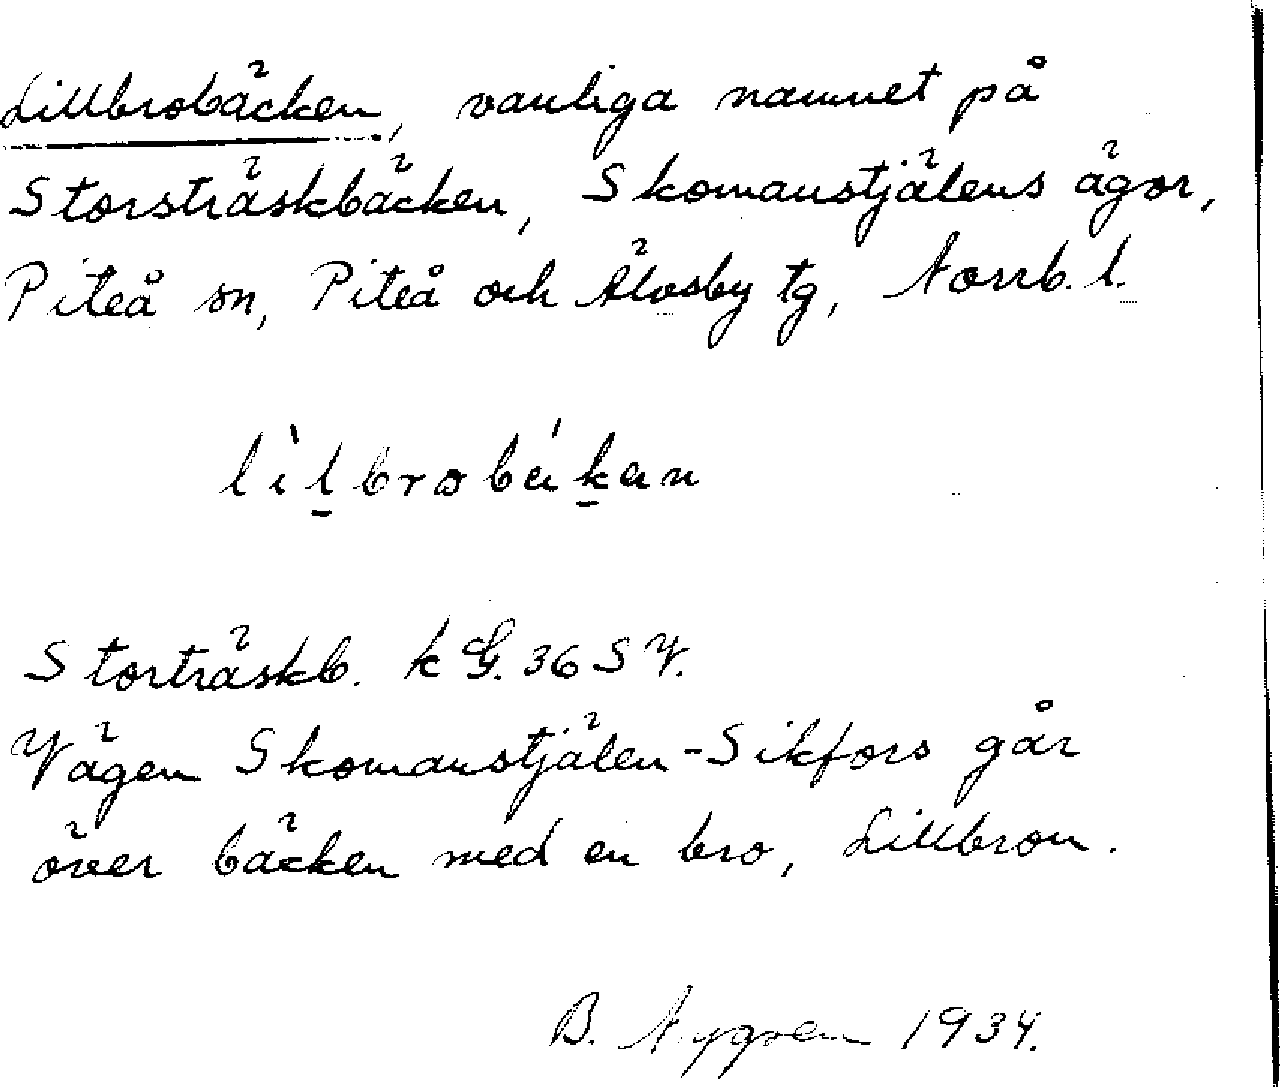 Lillbrobäcken, vanliga namnet på
Storsträskbäcken, Skomanstjälens ägor,
Piteå sn, Piteå och Älvsby tg, Norrb. l.
lìlbrobákan
Storträskb. k G. 36 S V.
Vägen Skomanstjälen-Sikfors går
över bäcken med en bro, Lillbron.
B. Nygren 1934.